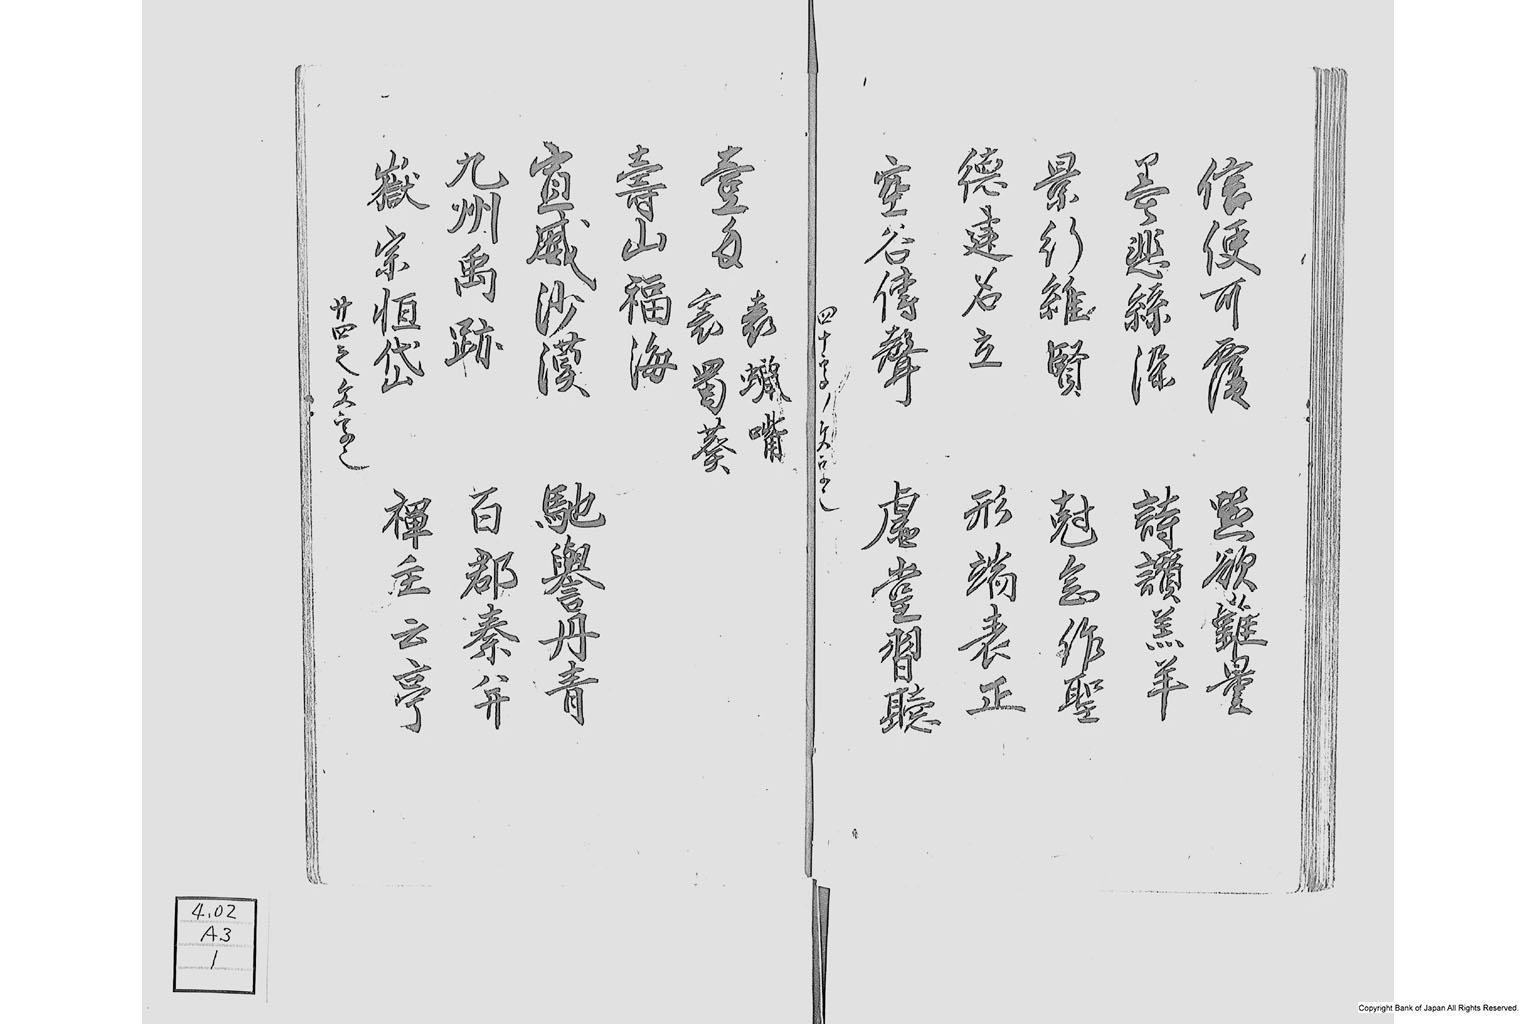 信使可覆　器欲難量
墨悲絲深　詩讃羔羊
景行維賢　尅念作聖
德建名立　形端表正
空谷傳聲　虛堂習聽
四十字ノ文字也
壹匁
表蠟嘴
裏蜀葵
壽山福海
宣威沙漠　馳譽丹青
九州禹跡　百郡秦并
嶽宗恒岱　禪主云亭
廿四之文字之
4.02
A3
1
Copyright Bank of Japan All Rights Reserved.